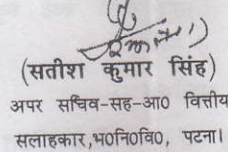 (सतीश कुमार सिंह)
अपर सचिव-सह-आ० वित्तीय
सलाहकार,भ०नि०वि०, पटना।